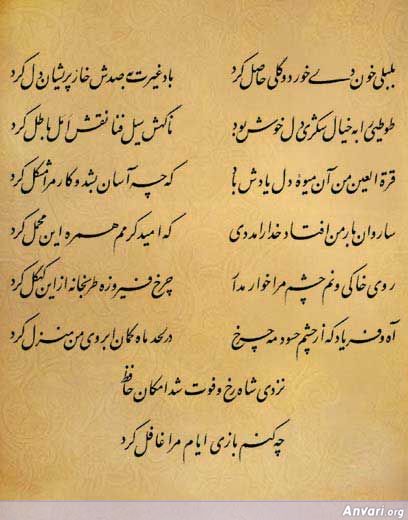 بلبلی خون دلی خورد و گلی حاصل کرد باد غیرت به صدش خار پریشان دل کرد
طوطیی را به خیال شکری دل خوش بود ناگهش سیل فنا نقش امل باطل کرد
قرة العین من آن میوه دل یادش باد که چه آسان بشد و کار مرا مشکل کرد
ساروان بار من افتاد خدا را مددی که امید کرمم همره این محمل کرد
روی خاکی و نم چشم مرا خوار مدار چرخ فیروزه طربخانه از این کهگل کرد
آه و فریاد که از چشم حسود مه چرخ در لحد ماه کمان ابروی من منزل کرد
نزدی شاه رخ و فوت شد امکان حافظ
چه کنم بازی ایام مرا غافل کرد
Anvari.org